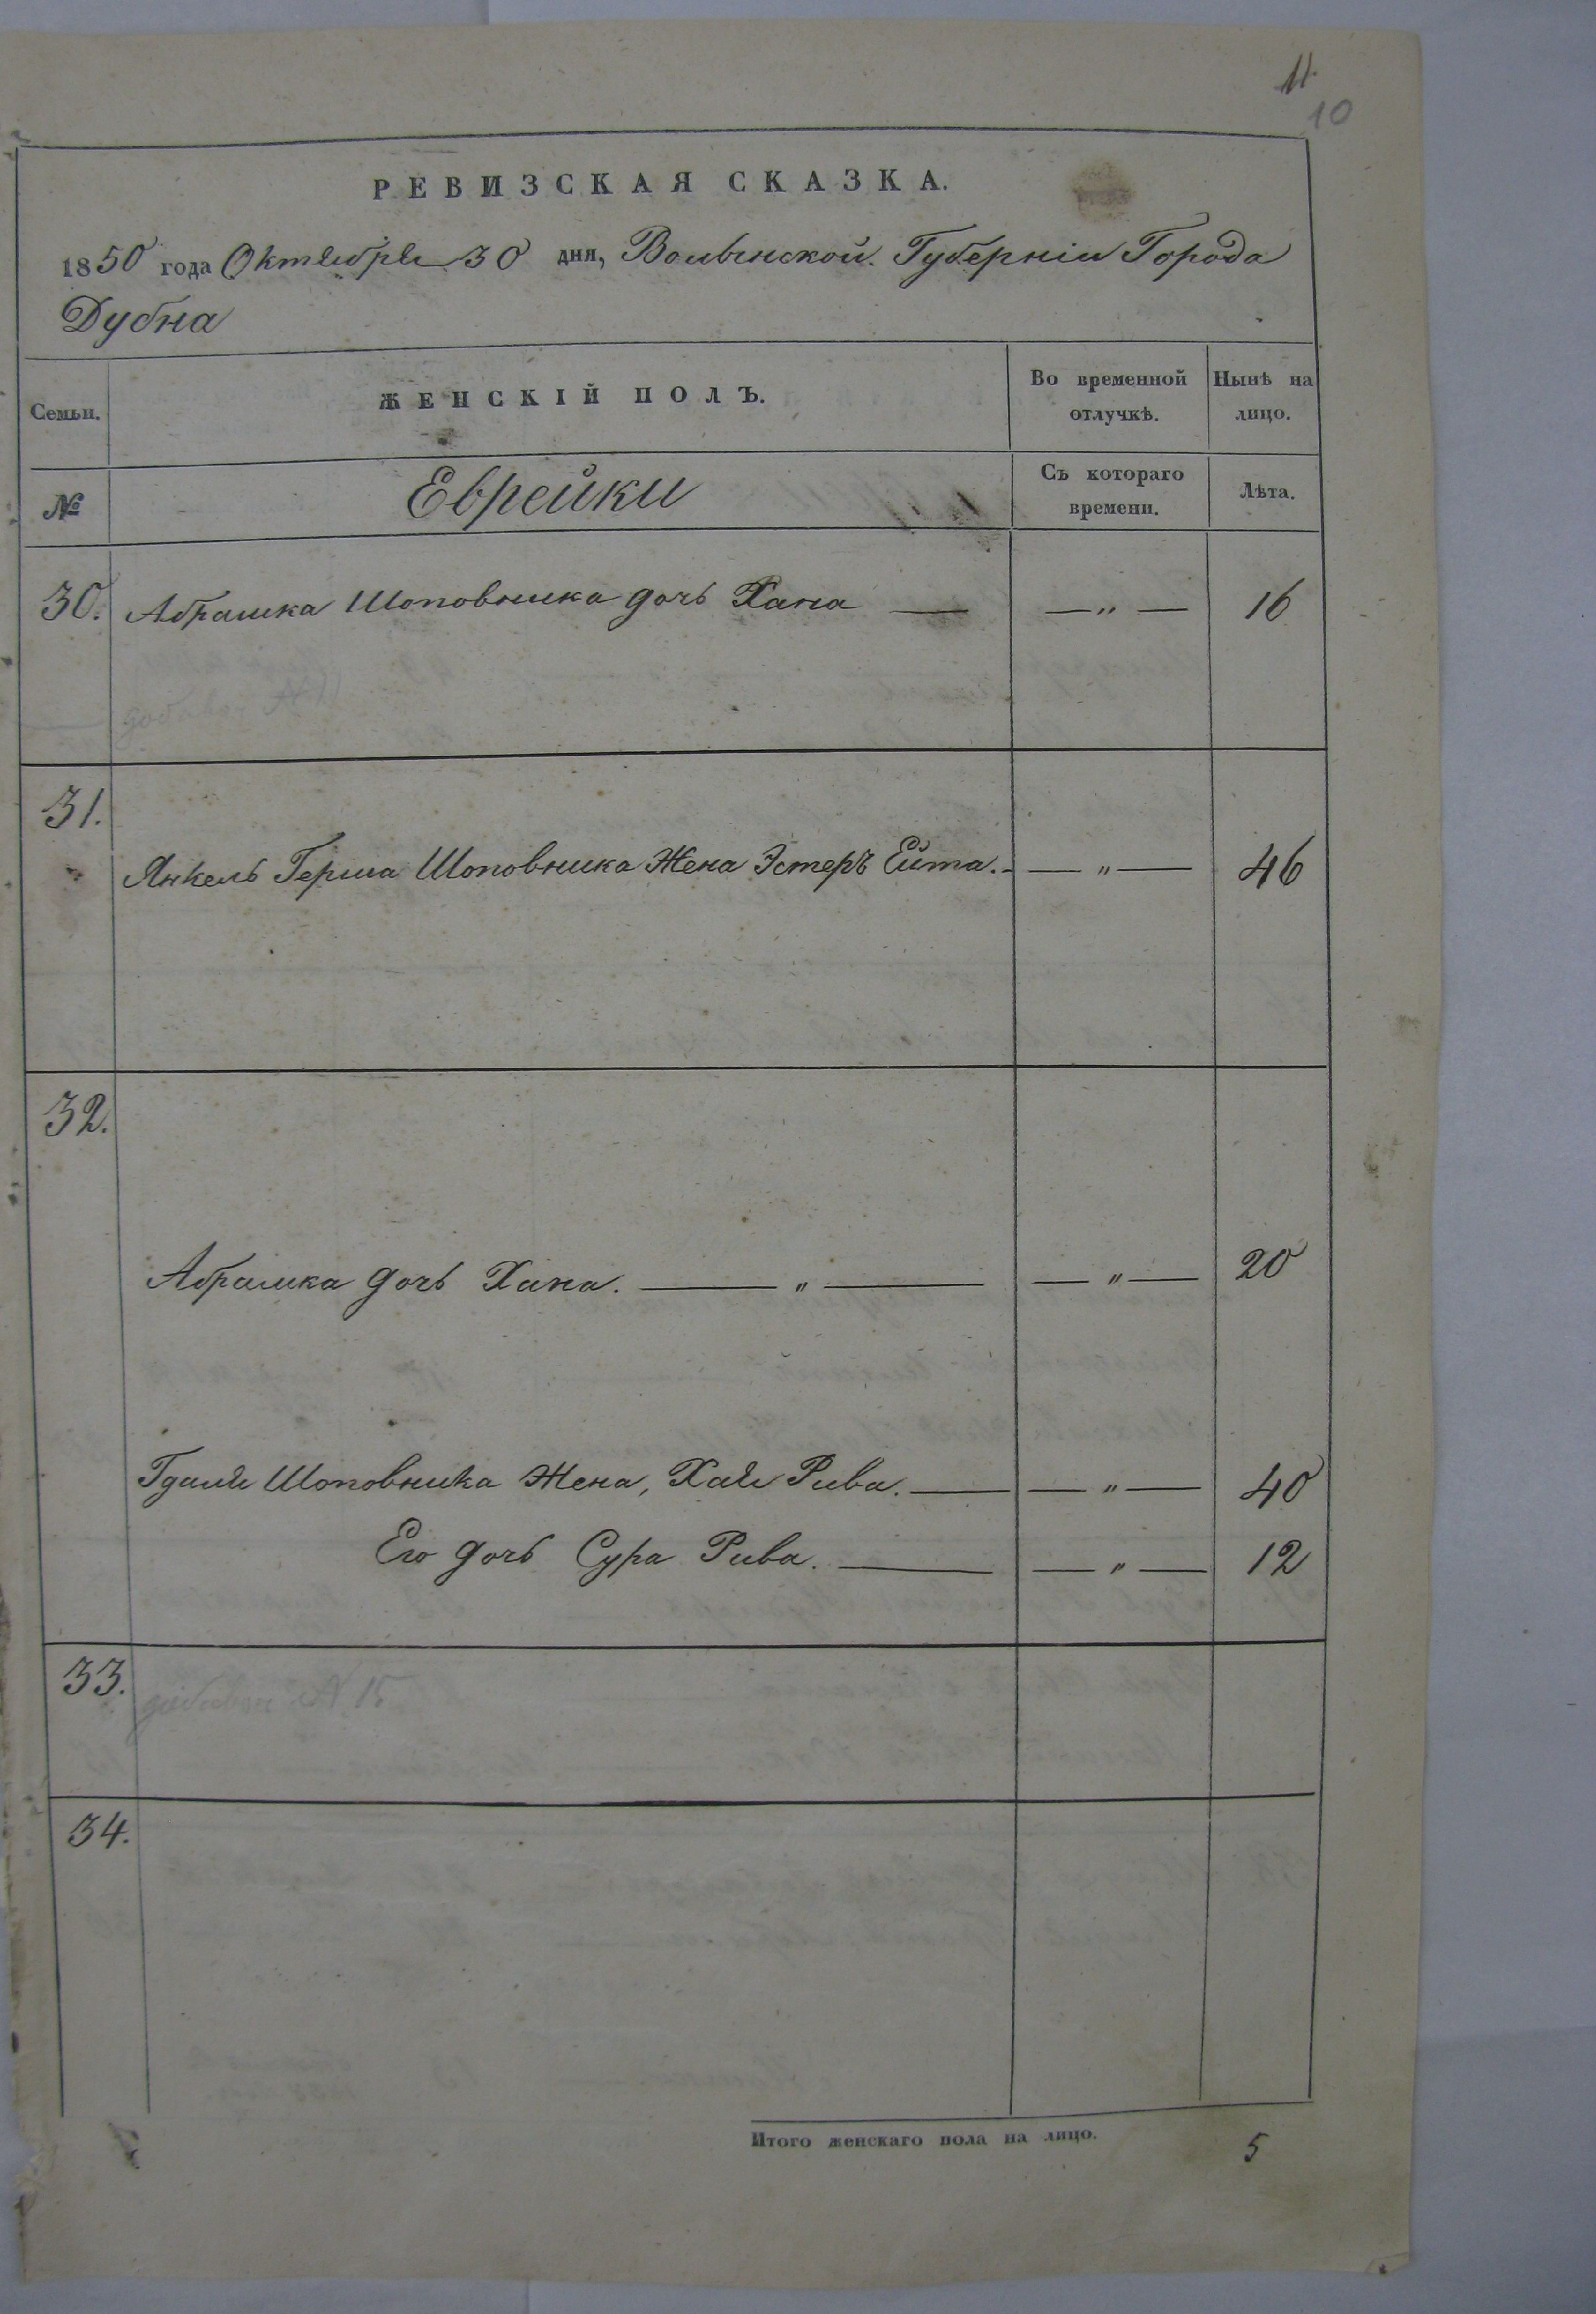 11.
10
РЕВИЗСКАЯ СКАЗКА.
1850 года Октября 30 дня, Волынской Губерніи Города
Дубна
Семьи.
ЖЕНСКІЙ ПОЛЪ.
Во временной отлучкѣ.
Нынѣ на лицо.
№
Еврейки
Съ котораго времени.
Лѣта.
30. Абрамка Шоповника дочь Хана — — " — 16
добавоч
31.
Янкель Герша Шоповника Жена Эстеръ Ейта. — " — 46
32.
Абрамка дочь Хана. — " — — " — 20
Гдаля Шоповника Жена, Хая Рива. — — " — 40
Его дочь Сура Рива. — — " — 12
33. добавоч № 15
34.
Итого женскаго пола на лицо. 5